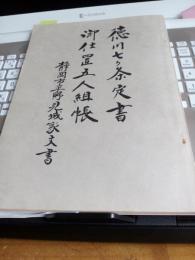 徳川七ヶ条定書
御仕置五人組帳
静岡市
見城家文書